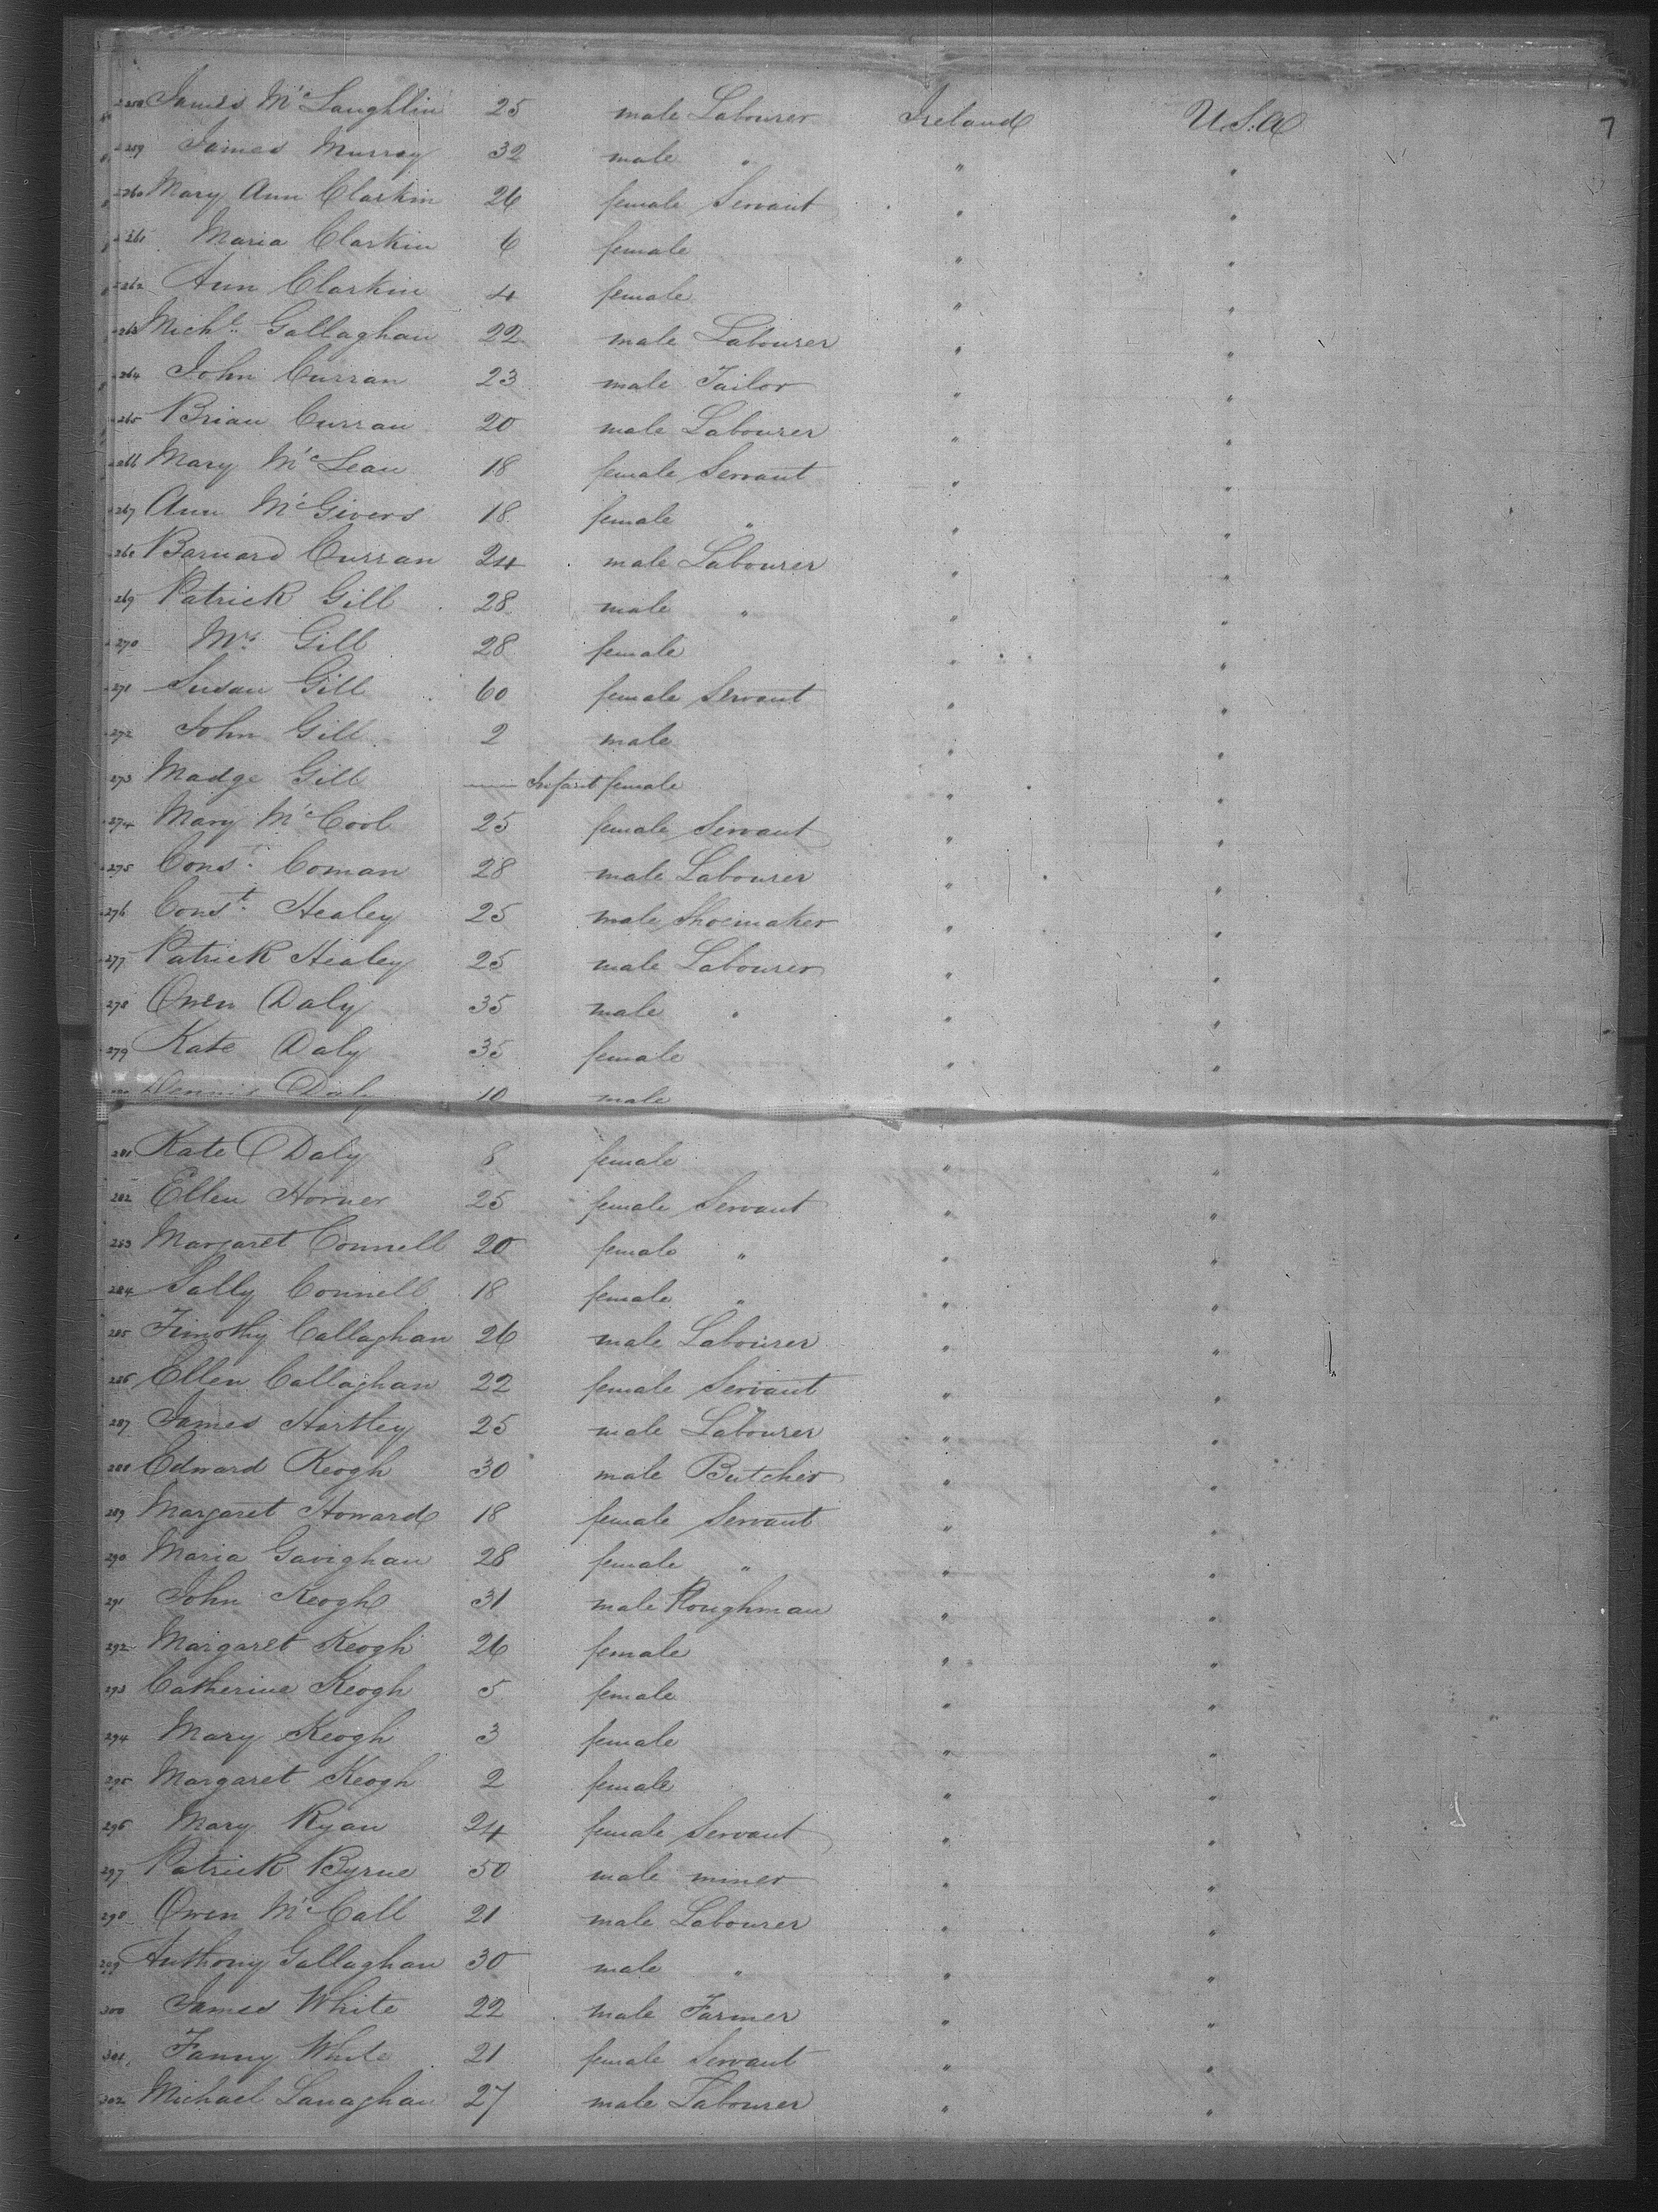 258 James McLaughlin 25 male Labourer Ireland U.S.A 7
259 James Murray 32 male " " "
260 Mary Ann Clarkin 26 female Servant " "
261 Maria Clarkin 6 female " "
262 Ann Clarkin 4 female " "
263 Michl. Gallaghan 22 male Labourer " "
264 John Curran 23 male Tailor " "
265 Brian Curran 20 male Labourer " "
266 Mary McLean 18 female Servant " "
267 Ann McGivers 18 female " " "
268 Barnard Curran 24 male Labourer " "
269 Patrick Gill 28 male " " "
270 Mrs. Gill 28 female " "
271 Susan Gill 60 female Servant " "
272 John Gill 2 male " "
273 Madge Gill — Infant female " "
274 Mary McCool 25 female Servant " "
275 Const. Coman 28 male Labourer " "
276 Const. Healey 25 male Shoemaker " "
277 Patrick Healey 25 male Labourer " "
278 Owen Daly 35 male " " "
279 Kate Daly 35 female " "
Dennis Daly 10 male
281 Kate Daly 8 female " "
282 Ellen Horner 25 female Servant " "
283 Margaret Connell 20 female " " "
284 Sally Connell 18 female " " "
285 Timothy Callaghan 26 male Labourer " "
286 Ellen Callaghan 22 female Servant " "
287 James Hartley 25 male Labourer " "
288 Edward Keogh 30 male Butcher " "
289 Margaret Howard 18 female Servant " "
290 Maria Gavighan 28 female " " "
291 John Keogh 31 male Ploughman " "
292 Margaret Keogh 26 female " "
293 Catherine Keogh 5 female " "
294 Mary Keogh 3 female " "
295 Margaret Keogh 2 female " "
296 Mary Ryan 24 female Servant " "
297 Patrick Byrne 50 male miner " "
298 Owen McCall 21 male Labourer " "
299 Anthony Gallaghan 30 male " " "
300 James White 22 male Farmer " "
301 Fanny White 21 female Servant " "
302 Michael Lanaghan 27 male Labourer " "